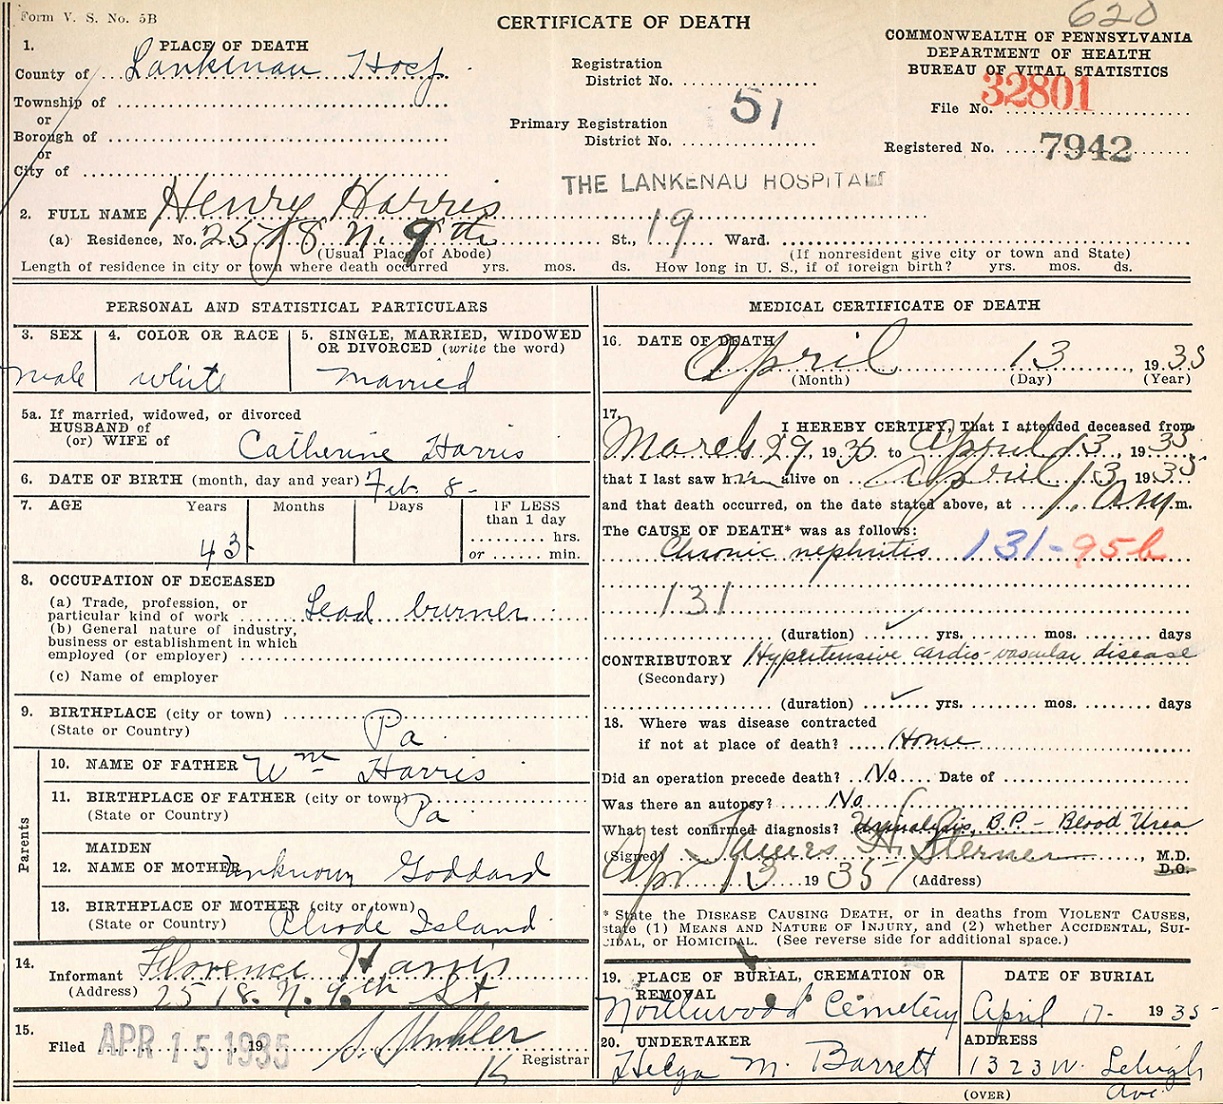 Form V. S. No. 5B
CERTIFICATE OF DEATH
620
COMMONWEALTH OF PENNSYLVANIA
DEPARTMENT OF HEALTH
BUREAU OF VITAL STATISTICS
1. PLACE OF DEATH
County of Lankenau Hosp
Township of
or
Borough of
or
City of
Registration
District No.
51
Primary Registration
District No.
File No. 32801
Registered No. 7942
THE LANKENAU HOSPITAL
2. FULL NAME Henry Harris
(a) Residence, No. 2518 N. 9th St., 19 Ward.
(Usual Place of Abode) (If nonresident give city or town and State)
Length of residence in city or town where death occurred yrs. mos. ds. How long in U. S., if of foreign birth? yrs. mos. ds.
PERSONAL AND STATISTICAL PARTICULARS
3. SEX 4. COLOR OR RACE 5. SINGLE, MARRIED, WIDOWED
OR DIVORCED (write the word)
male white married
5a. If married, widowed, or divorced
HUSBAND of
(or) WIFE of Catherine Harris
6. DATE OF BIRTH (month, day and year) Feb. 8-
7. AGE Years Months Days IF LESS
than 1 day
hrs.
or min.
43
8. OCCUPATION OF DECEASED
(a) Trade, profession, or
particular kind of work Lead burner
(b) General nature of industry,
business or establishment in which
employed (or employer)
(c) Name of employer
9. BIRTHPLACE (city or town)
(State or Country) Pa.
Parents
10. NAME OF FATHER Wm Harris
11. BIRTHPLACE OF FATHER (city or town)
(State or Country) Pa
MAIDEN
12. NAME OF MOTHER Unknown Goddard
13. BIRTHPLACE OF MOTHER (city or town)
(State or Country) Rhode Island
14. Informant Florence Harris
(Address) 2518 N. 9th St.
15.
Filed APR 15 1935, 19
Registrar
MEDICAL CERTIFICATE OF DEATH
16. DATE OF DEATH April 13, 1935
(Month) (Day) (Year)
17. I HEREBY CERTIFY, That I attended deceased from
March 29, 1935 to April 13, 1935
that I last saw him alive on April 13 1935
and that death occurred, on the date stated above, at 1. A.m.
The CAUSE OF DEATH* was as follows:
Chronic nephritis 131-95b
131
(duration) yrs. mos. days
CONTRIBUTORY Hypertensive cardio-vascular disease
(Secondary)
(duration) yrs. mos. days
18. Where was disease contracted
if not at place of death? Home
Did an operation precede death? No Date of
Was there an autopsy? No
What test confirmed diagnosis? Urinalysis, B.P. - Blood Urea
(Signed) James H. Sterner, M.D.
D.O.
Apr 13 1935 (Address)
* State the DISEASE CAUSING DEATH, or in deaths from VIOLENT CAUSES,
state (1) MEANS AND NATURE OF INJURY, and (2) whether ACCIDENTAL, SUI-
CIDAL, OR HOMICIDAL. (See reverse side for additional space.)
19. PLACE OF BURIAL, CREMATION OR
REMOVAL
Northwood Cemetery
DATE OF BURIAL
April 17- 1935
20. UNDERTAKER
Helga M. Barrett
ADDRESS
1323 W. Lehigh
Ave.
(OVER)